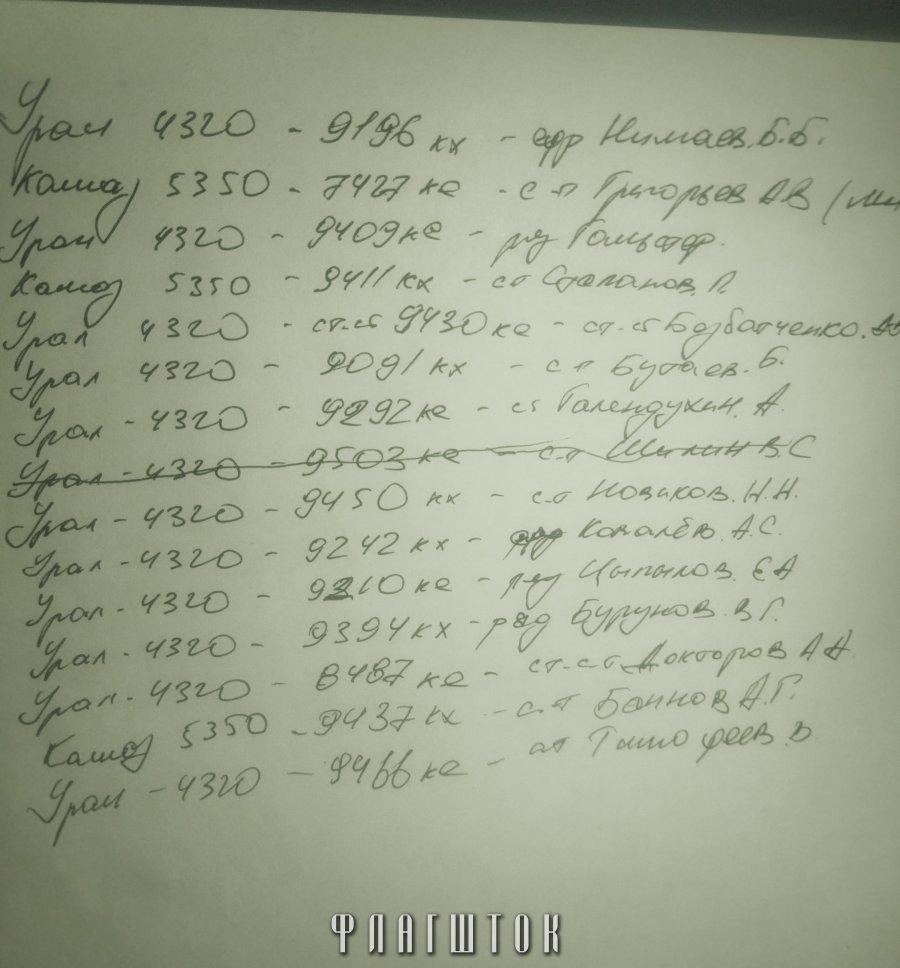 Урал 4320 - 9196 кх - Нимаев.Б.Б.
Камаз 5350 - 7427 ке - с-т Григорьев АВ
Урал 4320 - 9409 ке - ряд
Камаз 5350 - 9411 кх - ст
Урал 4320 - ст.ст 9430 ке - ст.ст Безбатченко.
Урал 4320 - 9091 кх - с-т Бутаев. Б.
Урал - 4320 - 9292 ке - ст Галендухин. А
Урал - 4320 - 9503 ке - с-т Шилин В.С
Урал - 4320 - 9450 кх - с-т Новиков. Н.Н.
Урал - 4320 - 9242 кх - Ковалёв. А.С.
Урал - 4320 - 9210 ке - ряд Цыпылов. ЕА
Урал - 4320 - 9394 кх - ряд Бурунов. В Г.
Урал - 4320 - 8487 ке - ст.с-т Докторов А А.
Камаз 5350 - 9437 кх - с-т Баннов А.Г.
Урал - 4320 - 9466 ке - Тимофеев.
ФЛАГШТОК